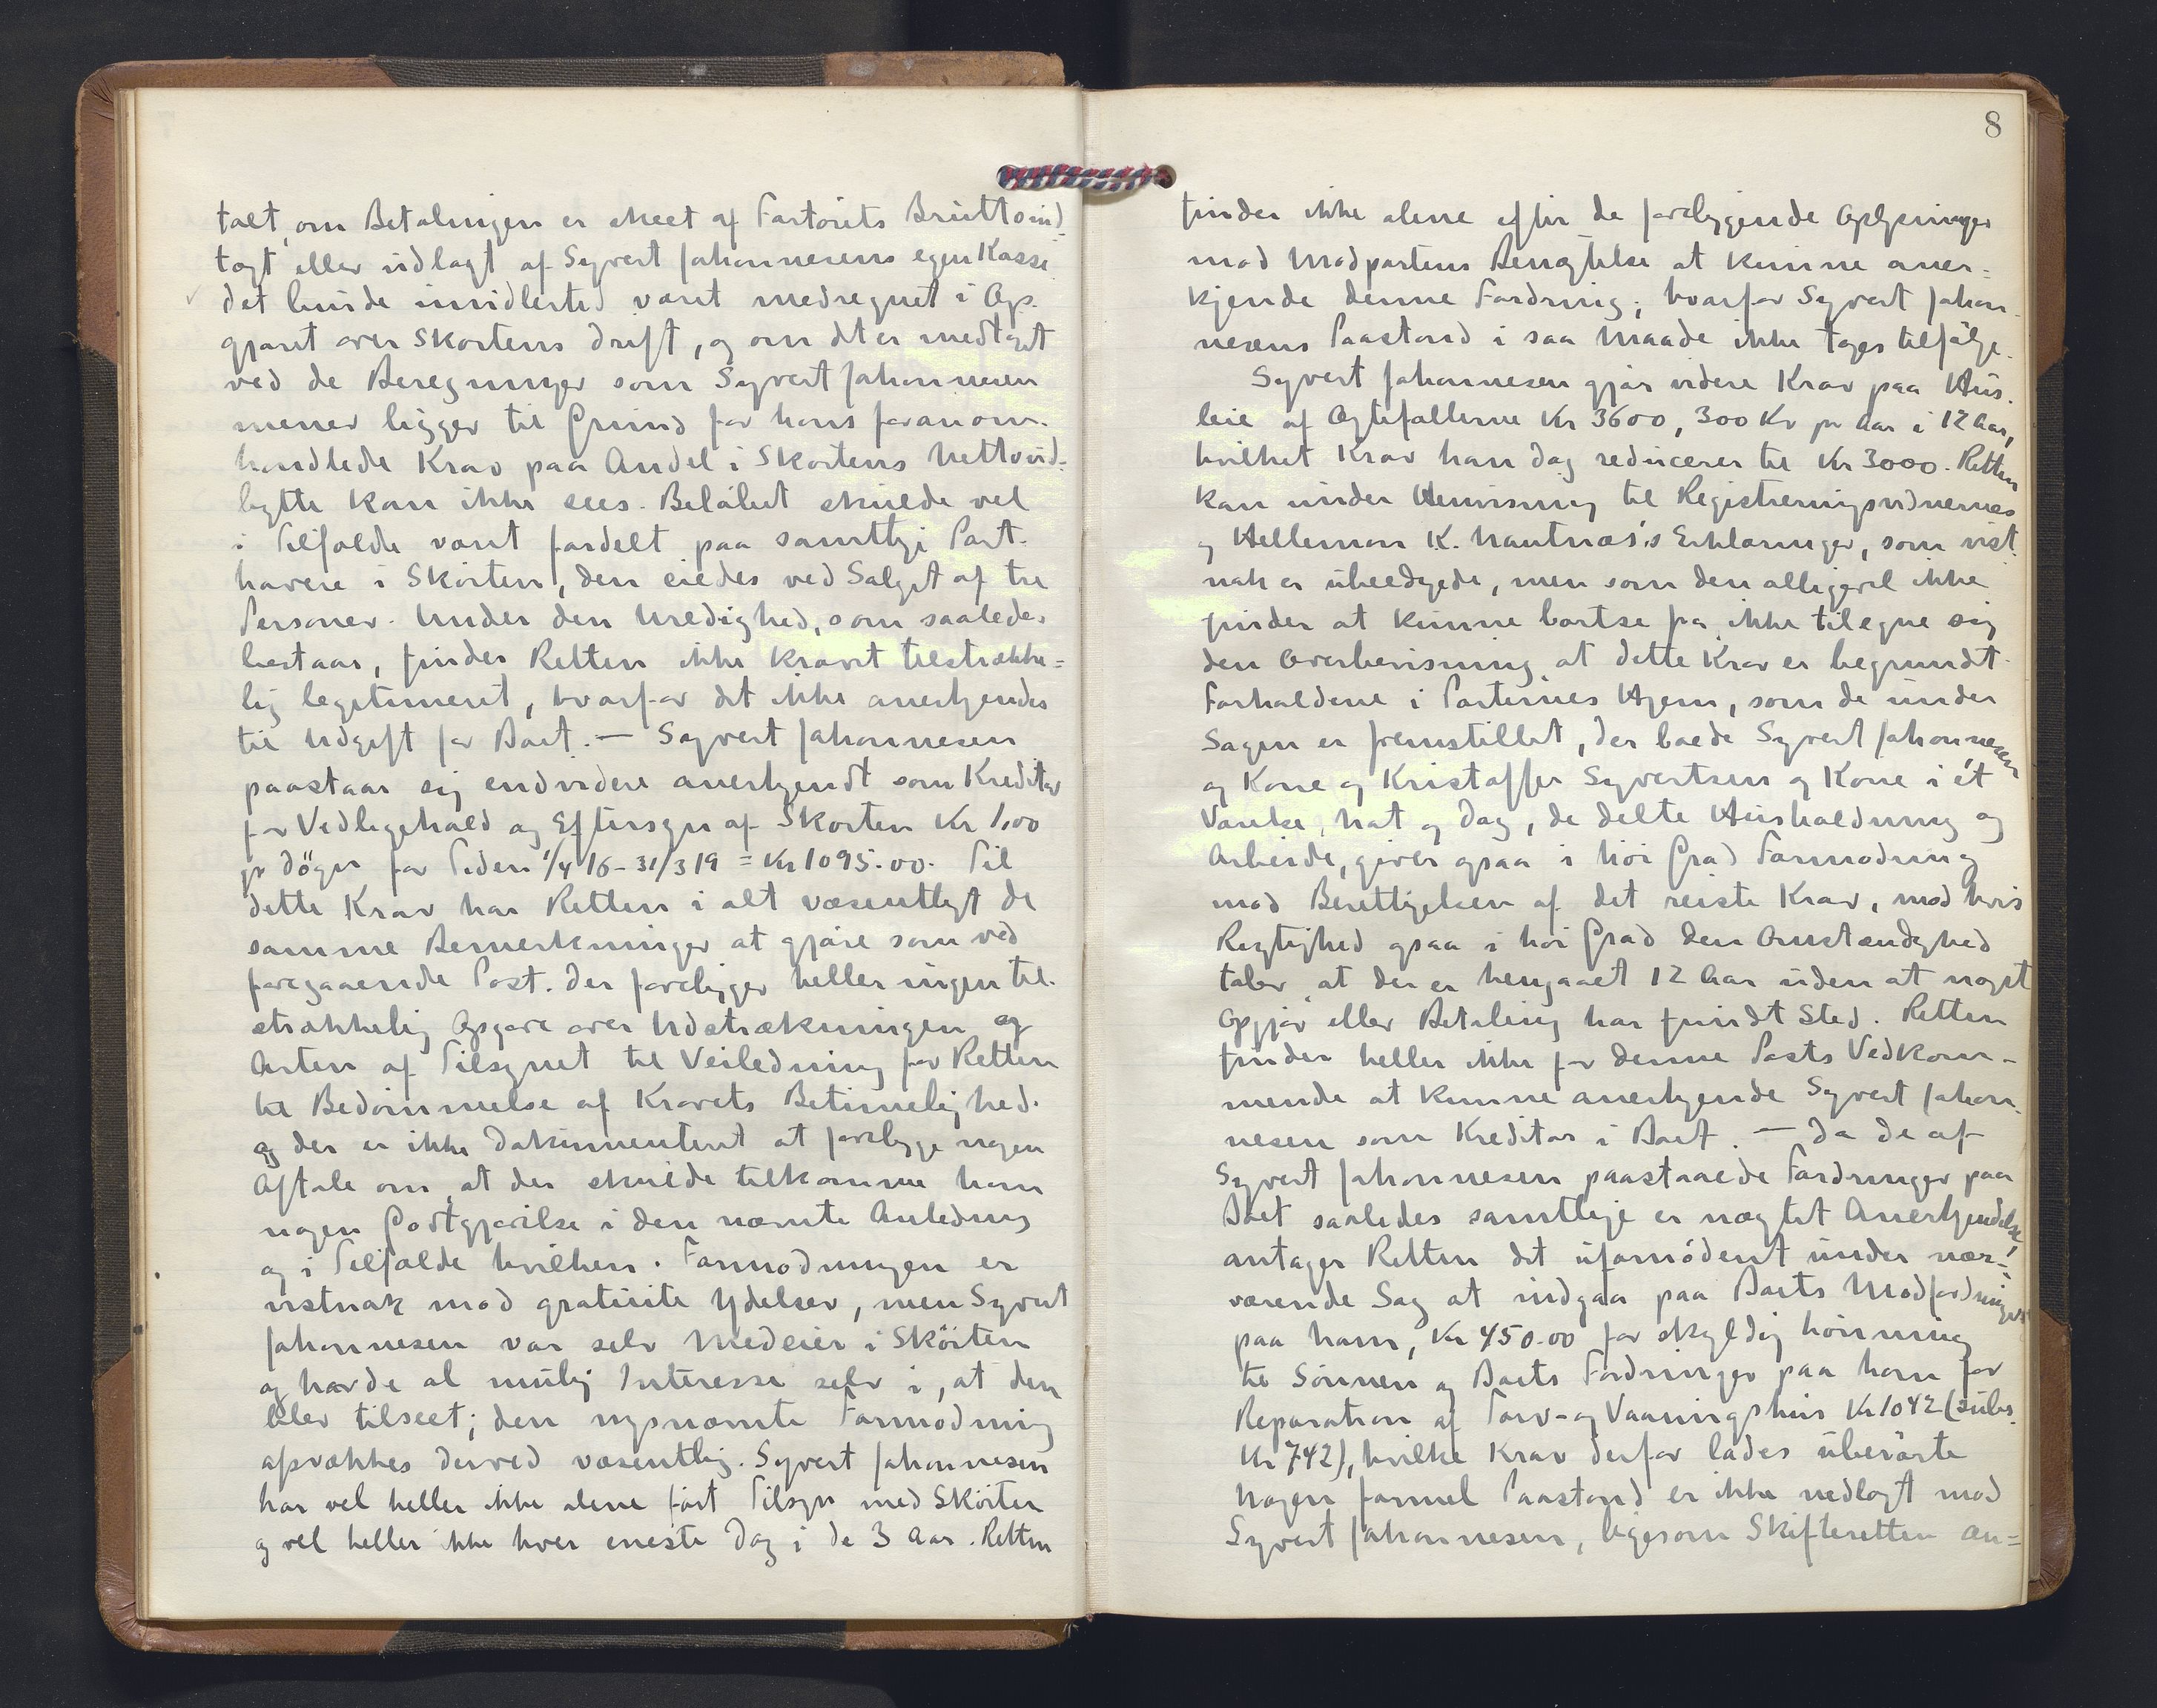 talt, om Betalingen er skeet af Fartöiets Bruttoind-
tægt eller udlagt af Syvert Johannesens egen Kasse
det burde imidlertid været medregnet i Op-
gjøret over Skøitens Drift, og om det er medtaget
ved de Beregninger som Syvert Johannesen
mener ligger til Grund for hans foranom-
handlede Krav paa Andel i Skøitens Nettoud-
bytte kan ikke sees. Beløbet skulde vel
i Tilfælde været fordelt paa samtlige Part-
havere i Skøiten, den eiedes ved Salget af tre
Personer. Under den Uredighed, som saaledes
bestaar, finder Retten ikke Kravet tilstrække-
lig legitimeret, hvorfor det ikke anerkjendes
til Udgift for Boet. — Syvert Johannesen
paastaar sig endvidere anerkjendt som Kreditor
for Vedligehold og Eftersyn af Skøiten Kr 1,00
pr Døgn for Tiden 1/4 16 - 31/3 19 = Kr 1095.00. Til
dette Krav har Retten i alt væsentligt de
samme Bemerkninger at gjøre som ved
foregaaende Post. Der foreligger heller ingen til-
strækkelig Opgave over Udstrækningen og
Arten af Tilsynet til Veiledning for Retten
til Bedømmelse af Kravets Betimelighed.
og der er ikke dokumenteret at foreligge nogen
Aftale om, at der skulde tilkomme ham
nogen Godtgjørelse i den nævnte Anledning
og i Tilfælde hvilken. Formodningen er
vistnok mod gratuite Ydelser, men Syvert
Johannesen var selv Medeier i Skøiten
og havde al mulig Interesse selv i, at den
blev tilseet; den nysnævnte Formodning
afsvækkes derved væsentlig. Syvert Johannesen
har vel heller ikke alene ført Tilsyn med Skøiten
og vel heller ikke hver eneste Dag i de 3 Aar. Retten
8
finder ikke alene efter de foreliggende Oplysninger
mod Modpartens Benægtelse at kunne aner-
kjende denne Fordring, hvorfor Syvert Johan-
nesens Paastand i saa Maade ikke tages tilfølge.
Syvert Johannesen gjør videre Krav paa Hus-
leie af Ægtefællerne Kr 3600, 300 Kr pr Aar i 12 Aar,
hvilket Krav han dog reducerer til Kr 3000. Retten
kan under Henvisning til Registreringsvidnernes
og Helleman K. Nautnæs's Erklæringer, som vist-
nok er ubeedigede, men som den alligevel ikke
finder at kunne bortse fra, ikke tilegne sig
den Overbevisning at dette Krav er begrundet.
Forholdene i Parternes Hjem, som de under
Sagen er fremstillet, der baade Syvert Johannesen
og Kone og Kristoffer Syvertsen og Kone i ét
Værelse, nat og dag, de delte Husholdning og
Arbeide, giver ogsaa i høi Grad Formodning
mod Berettigelsen af det reiste Krav, mod hvis
Rigtighed ogsaa i høi Grad den Omstændighed
taler, at der er hengaaet 12 Aar uden at noget
Opgjør eller Betaling har fundet Sted. Retten
finder heller ikke for denne Posts Vedkom-
mende at kunne anerkjende Syvert Johan-
nesen som Kreditor i Boet. — Da de af
Syvert Johannesen paastaaede Fordringer paa
Boet saaledes samtlige er nægtet Anerkjendelse,
antager Retten det ufornødent under nær-
værende Sag at indgaa paa Boets Modfordringer
paa ham, Kr 450.00 for skyldig hønning
til Sønnen og Boets Fordringer paa ham for
Reparation af Torv- og Vaaningshus Kr 1042 (subs.
Kr 742), hvilke Krav derfor lades uberørte
Nogen formel Paastand er ikke nedlagt mod
Syvert Johannesen, ligesom Skifteretten an-